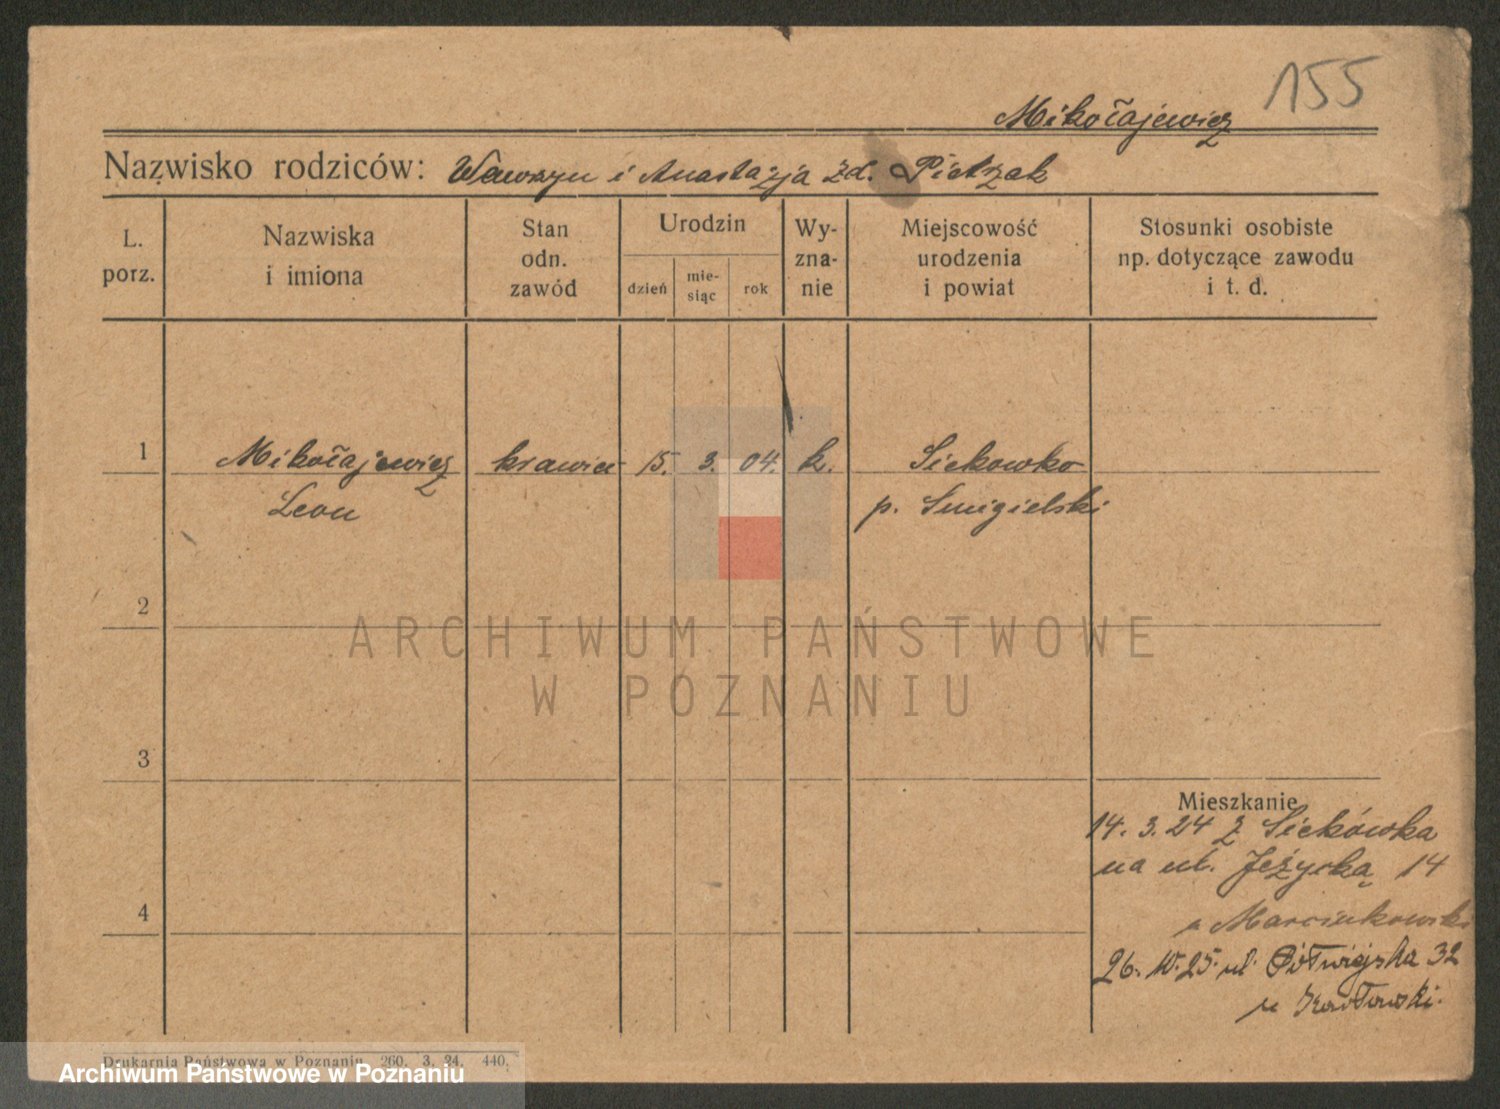 155
Mikołajewicz
Nazwisko rodziców: Wawrzyn i Anastazja zd. Pietrzak
L. porz.
Nazwiska i imiona
Stan odn. zawód
Urodzin
dzień
mie-siąc
rok
Wy-zna-nie
Miejscowość urodzenia i powiat
Stosunki osobiste np. dotyczące zawodu i t. d.
1 Mikołajewicz krawiec 15. 3. 04. k. Siekowko
Leon p. Smigielski
2
ARCHIWUM PAŃSTWOWE
W POZNANIU
3
Mieszkanie
14. 3. 24 z Siekówka
na ul. Jeżycką 14
4
u Marcinkowski
26. 10. 25. ul. Półwiejska 32
u
Drukarnia Państwowa w Poznaniu 260. 3. 24. 440.
Archiwum Państwowe w Poznaniu